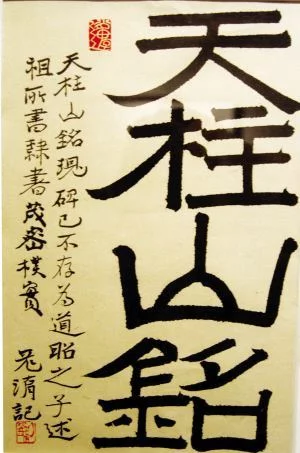 天柱山銘
天柱山銘現碑已不存為道昭之子述
祖所書隸書茂密樸實
記